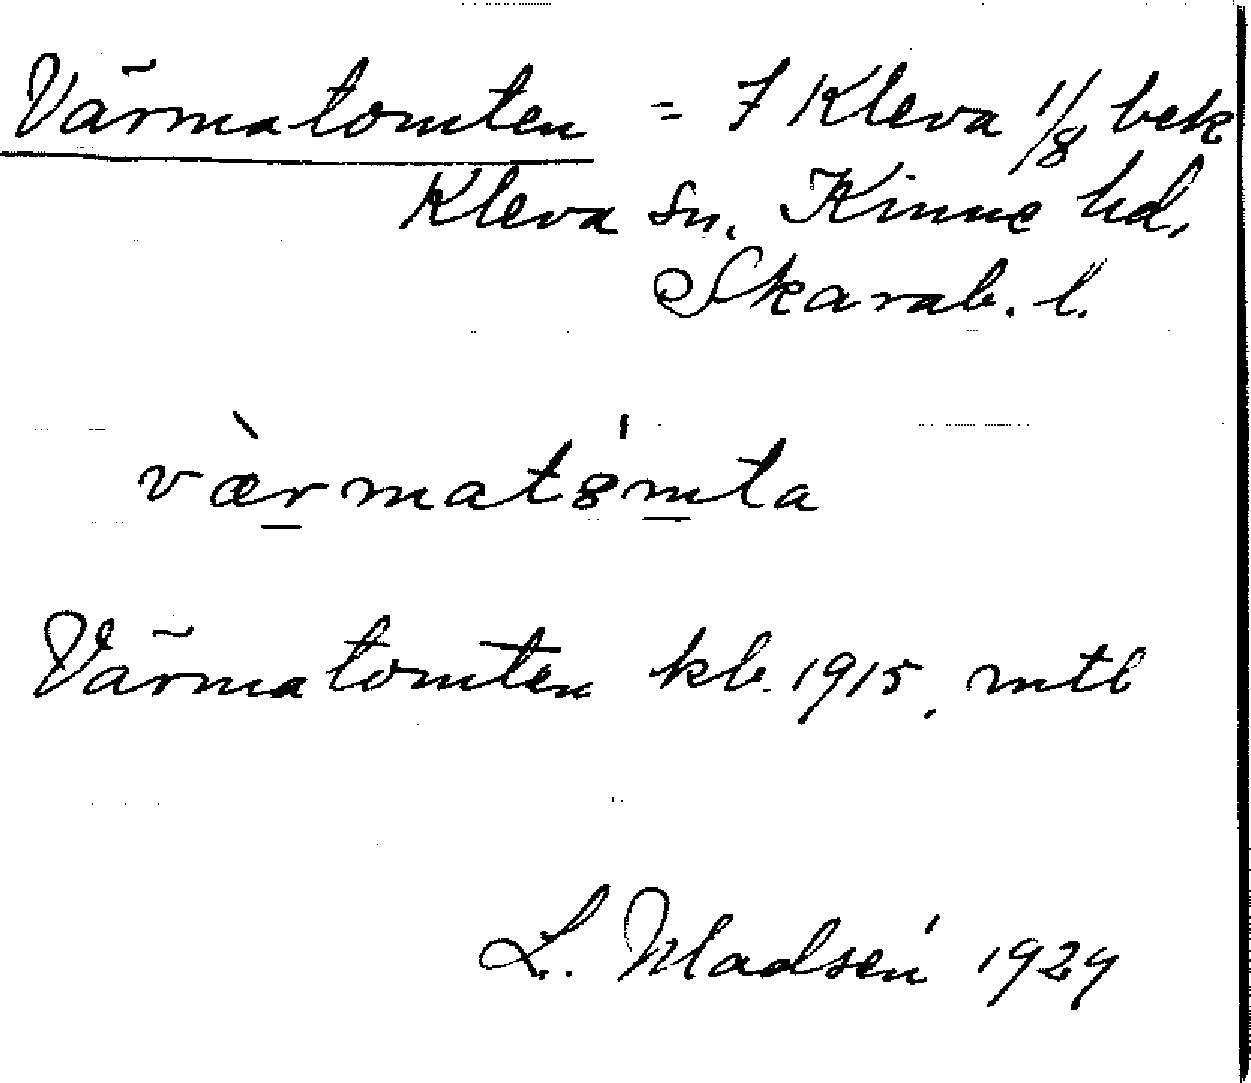 Värmatomten = 7 Kleva 1/8 bek
Kleva sn. Kinne hd.
Skarab. l.
værmat8mta
Värmatomten kb. 1915, mtl
L. Madsén 1929